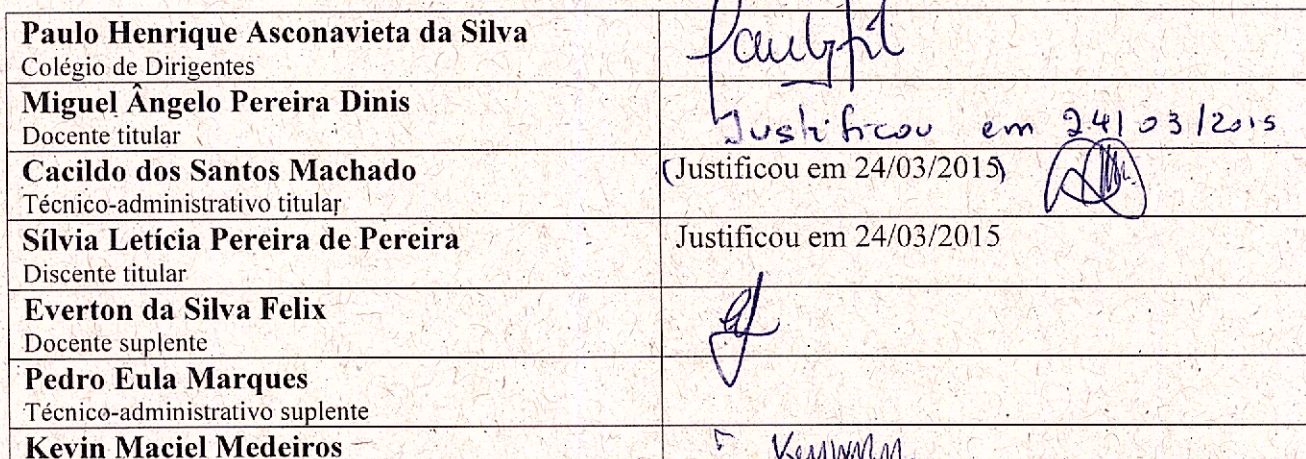 Paulo Henrique Asconavieta da Silva
Colégio de Dirigentes
Miguel Ângelo Pereira Dinis
Docente titular
Justificou em 24/03/2015
Cacildo dos Santos Machado
Técnico-administrativo titular
(Justificou em 24/03/2015)
Sílvia Letícia Pereira de Pereira
Discente titular
Justificou em 24/03/2015
Everton da Silva Felix
Docente suplente
Pedro Eula Marques
Técnico-administrativo suplente
Kevin Maciel Medeiros